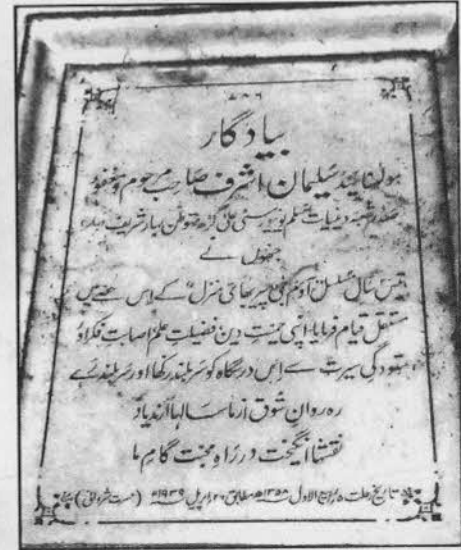 ۷۸۶
بیادگار
مولٰنا سید سلیمان اشرف صاحب مرحوم و مغفور
صدر شعبہ دینیات مسلم یونیورسٹی علی گڑھ متوطن بہار شریف
جنہوں نے
تیس سال مسلسل آدم جی پیر بھائی منزل کے اس حصے میں
مستقل قیام فرمایا اپنی حمیت دین فضیلت علم اصابت فکر اور
ستودگی سیرت سے اس درسگاہ کو سر بلند رکھا اور سر بلند رہے
رہ روان شوق از ما سالہا آرند یاد
نقشہا انگیخت در راہ محبت گام ما
تاریخ رحلت ۵ ربیع الاول ۱۳۵۸ھ مطابق اپریل ۱۹۳۹ء